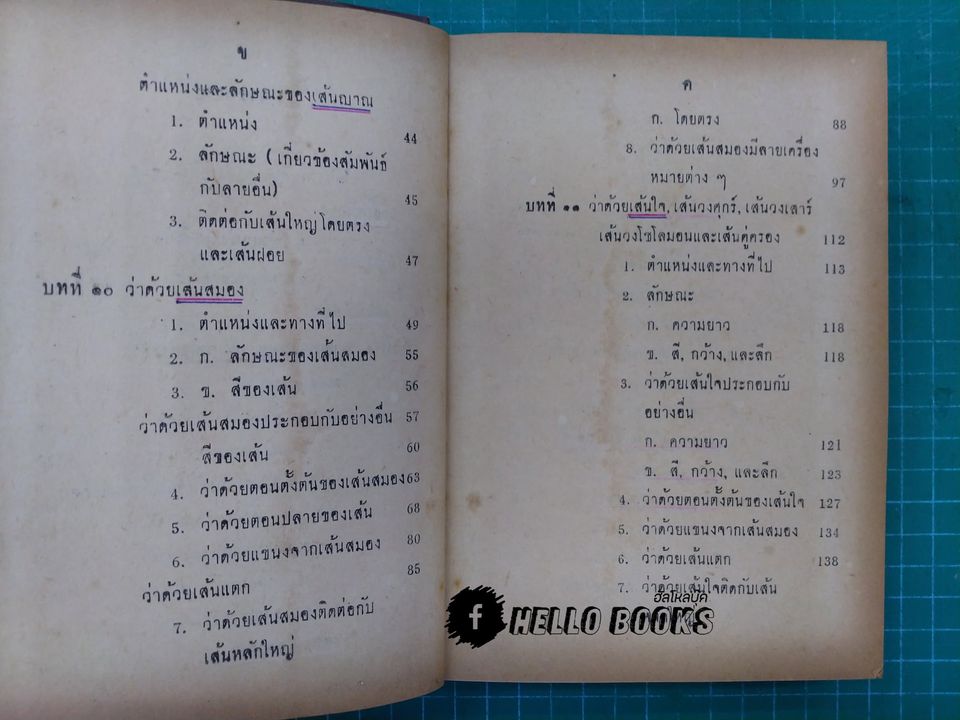 ข
ตำแหน่งและลักษณะของเส้นญาณ
1. ตำแหน่ง 44
2. ลักษณะ ( เกี่ยวข้องสัมพันธ์
กับลายอื่น) 45
3. ติดต่อกับเส้นใหญ่โดยตรง
และเส้นฝอย 47
บทที่ ๑๐ ว่าด้วยเส้นสมอง
1. ตำแหน่งและทางที่ไป 49
2. ก. ลักษณะของเส้นสมอง 55
3. ข. สีของเส้น 56
ว่าด้วยเส้นสมองประกอบกับอย่างอื่น 57
สีของเส้น 60
4. ว่าด้วยตอนตั้งต้นของเส้นสมอง 63
5. ว่าด้วยตอนปลายของเส้น 68
6. ว่าด้วยแขนงจากเส้นสมอง 80
ว่าด้วยเส้นแตก 85
7. ว่าด้วยเส้นสมองติดต่อกับ
เส้นหลักใหญ่
ค
ก. โดยตรง 88
8. ว่าด้วยเส้นสมองมีลายเครื่อง
หมายต่าง ๆ 97
บทที่ ๑๑ ว่าด้วยเส้นใจ, เส้นวงศุกร์, เส้นวงเสาร์
เส้นวงโซโลมอนและเส้นคู่ครอง 112
1. ตำแหน่งและทางที่ไป 113
2. ลักษณะ
ก. ความยาว 118
ข. สี, กว้าง, และลึก 118
3. ว่าด้วยเส้นใจประกอบกับ
อย่างอื่น
ก. ความยาว 121
ข. สี, กว้าง, และลึก 123
4. ว่าด้วยตอนตั้งต้นของเส้นใจ 127
5. ว่าด้วยแขนงจากเส้นสมอง 134
6. ว่าด้วยเส้นแตก 138
7. ว่าด้วยเส้นใจติดกับเส้น
ฮัลโหลบุ๊ค
f HELLO BOOKS